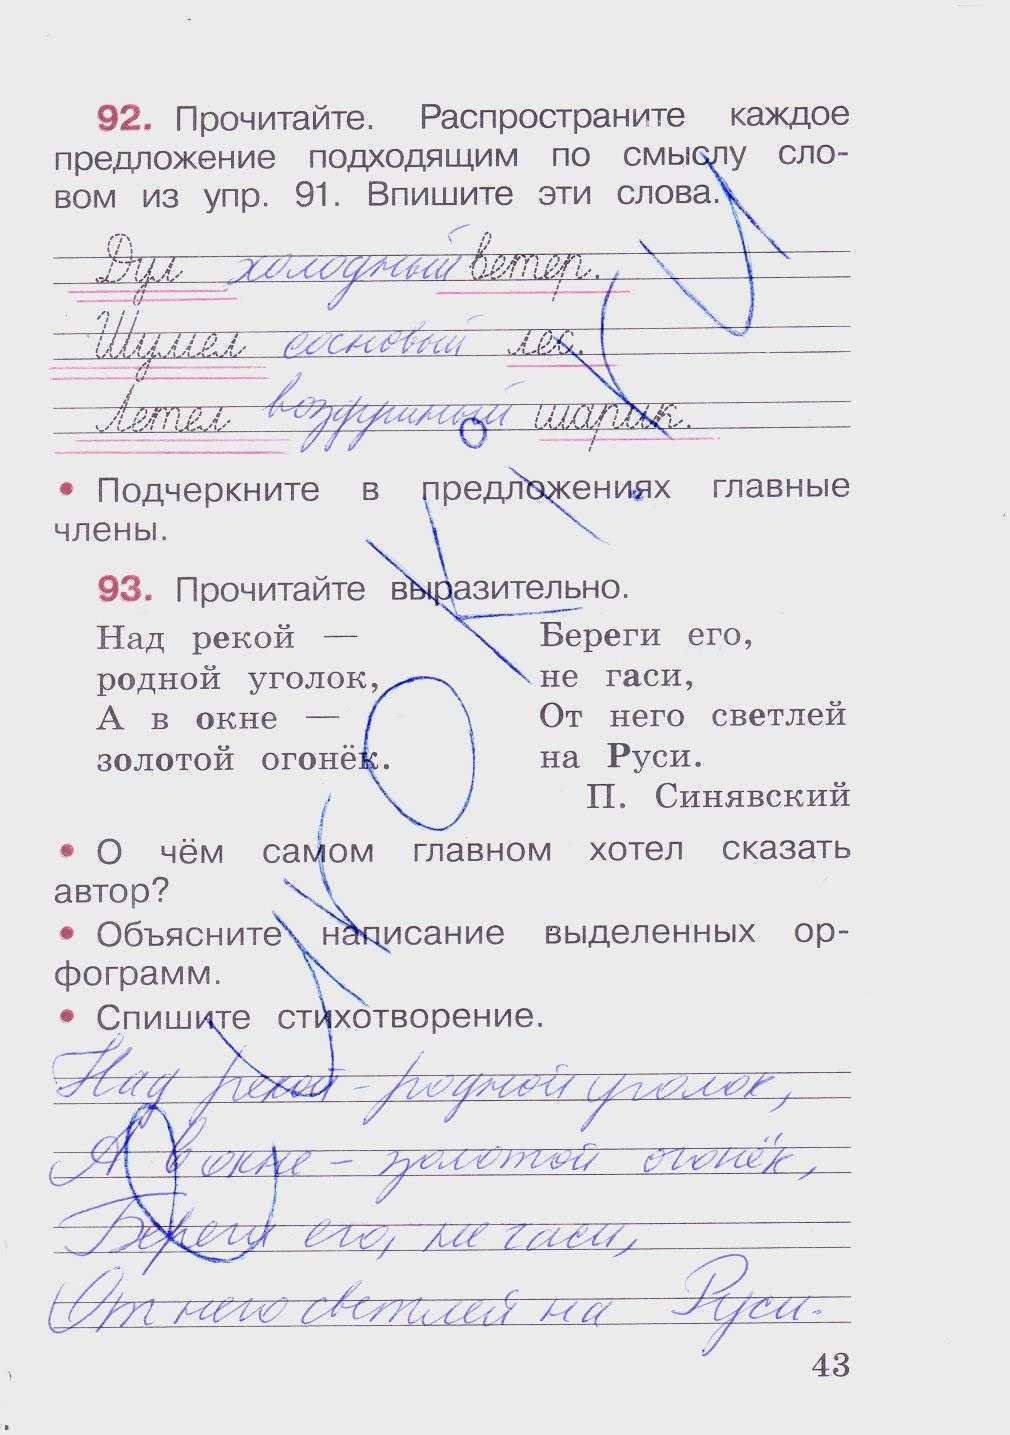 92. Прочитайте. Распространите каждое
предложение подходящим по смыслу сло-
вом из упр. 91. Впишите эти слова.
Дул холодный ветер.
Шумел сосновый лес.
Летел воздушный шарик.
• Подчеркните в предложениях главные
члены.
93. Прочитайте выразительно.
Над рекой —
родной уголок,
А в окне —
золотой огонёк.
Береги его,
не гаси,
От него светлей
на Руси.
П. Синявский
• О чём самом главном хотел сказать
автор?
• Объясните написание выделенных ор-
фограмм.
• Спишите стихотворение.
Над рекой – родной уголок,
А в окне – золотой огонёк,
Береги его, не гаси,
От него светлей на Руси.
43